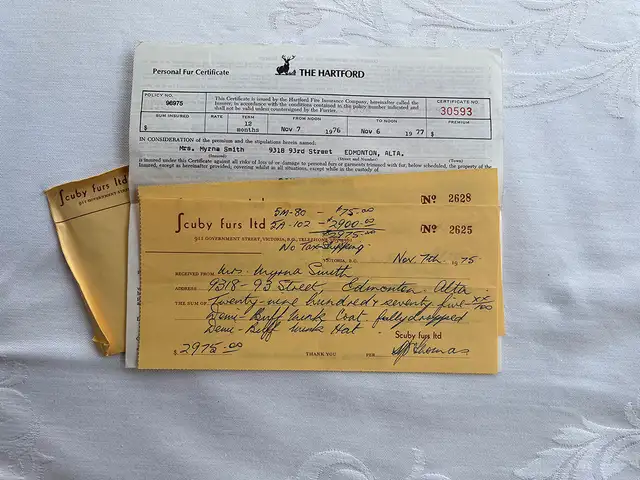 Personal Fur Certificate
THE HARTFORD
POLICY NO.
96975
This Certificate is issued by the Hartford Fire Insurance Company, hereinafter called the
Insurer, in accordance with the conditions contained in the policy number indicated and
shall not be valid unless countersigned by the Furrier.
CERTIFICATE NO.
30593
SUM INSURED
RATE
TERM
FROM NOON
TO NOON
PREMIUM
$
12
months
Nov 7 1976
Nov 6 1977
$
IN CONSIDERATION of the premium and the stipulations herein named:
Mrs. Myrna Smith 9318 93rd Street EDMONTON, ALTA.
(Insured) (Street and Number) (Town)
is insured under this Certificate against all risks of loss of or damage to personal furs or garments trimmed with fur, below scheduled, the property of the
Insured, except as hereinafter provided, covering whilst in all situations, except while in the custody of
Scuby furs ltd
No 2628
Scuby furs ltd
GOVERNMENT STREET, VICTORIA, B.C., TELEPHONE
5M-80 - $75.00
2A-102 - $2900.00
$2975.00
No Tax Shipping
No 2625
VICTORIA, B.C. Nov. 7th 1975
RECEIVED FROM Mrs. Myrna Smith
ADDRESS 9318-93 Street, Edmonton. Alta.
THE SUM OF Twenty-nine hundred & seventy five xx/100
Demi-Buff mink Coat. fully dropped
Demi-Buff mink Hat.
Scuby furs ltd
$ 2975.00 THANK YOU PER